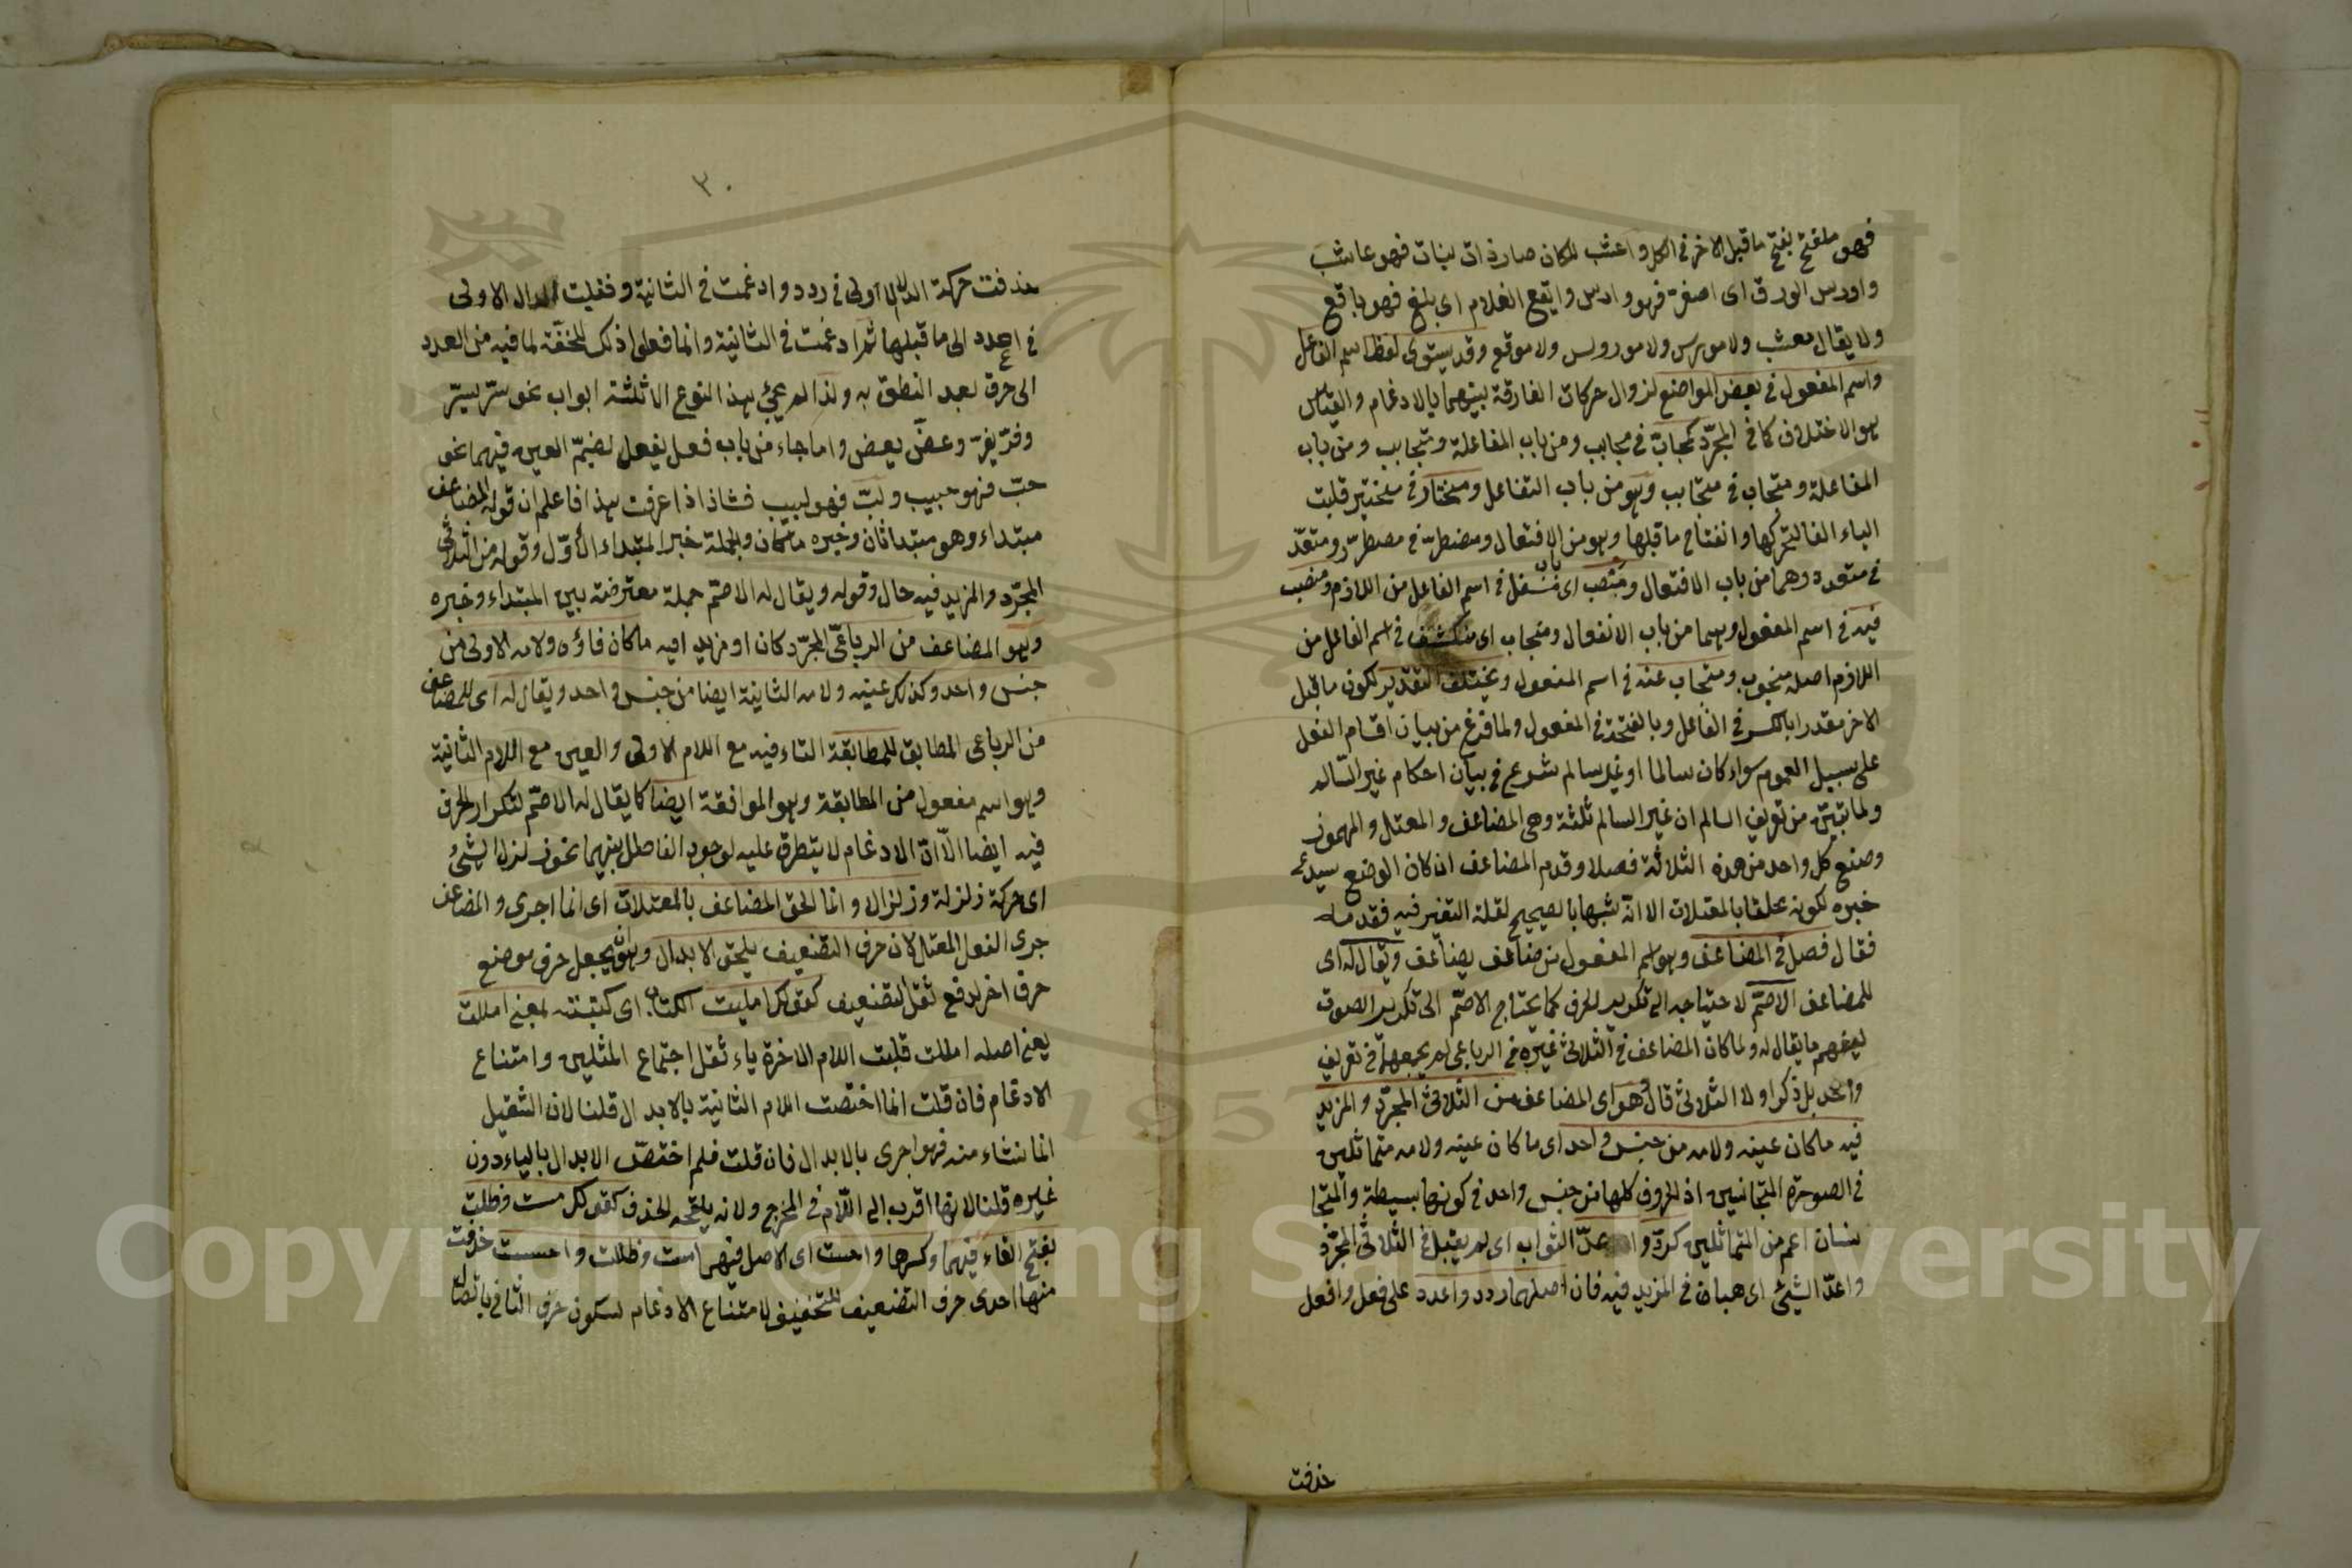 فهو ملفح بفتح ما قبل الاخر فى الكل واعشب المكان صار ذات نبات فهو عاشب
واورس الورق اى اصفر فهو وارس وايفع الغلام اى بلغ فهو يافع
ولا يقال معشب ولا مورس ولا موقع وقد يستوى لفظا اسم الفاعل
واسم المفعول فى بعض المواضع لزوال حركات الفارقة بينهما بالادغام والقياس
هو الاختلاف كما فى المجرد كمحاب فى محابب ومن باب المفاعلة ومتحابب ومن باب
المفاعلة ومتحاب فى متحابب وهو من باب التفاعل ومختار فى مختير قلبت
الياء الفا لتحركها وانفتاح ما قبلها وهو من الافتعال ومضطر فى مضطرر ومتعد
فى متعدد وهما من باب الافتعال ومنصب اى فى اسم الفاعل من اللازم ومنصب
فيه فى اسم المفعول وهما من باب الانفعال ومنجاب اى منكشف فى اسم الفاعل من
اللازم اصله منجوب ومنجاب عنه فى اسم المفعول ويختلف التقدير لكون ما قبل
الاخر مقدرا بالكسر فى الفاعل وبالفتحة فى المفعول ولما فرغ من بيان اقسام الفعل
على سبيل العموم سواء كان سالما او غير سالم شرع فى بيان احكام غير السالم
ولما تبين من تعريف السالم ان غير السالم ثلثة وهى المضاعف والمعتل والمهموز
وصنع كل واحد من هذه الثلاثة فصلا وقدم المضاعف ان كان الوضع
خبره لكونه ملحقا بالمعتلات الا انه شبها بالصحيح لقلة التغير فيه فقدمه
فقال فصل فى المضاعف وهو اسم المفعول من ضاعف يضاعف ويقال له اى
للمضاعف الاصم لاحتياجه الى تكرير الحرف كما يحتاج الاصم الى تكرير الصوت
ليفهم ما يقال له ولما كان المضاعف فى الثلاثى غيره فى الرباعى لم يجمعها فى تعريف
واحد بل ذكر اولا الثلاثى قال وهو اى المضاعف من الثلاثى المجرد والمزيد
فيه ما كان عينه ولامه من جنس واحد اى ما كان عينه ولامه متماثلين
فى الصورة المتجانسين اذ الحروف كلها من جنس واحد فى كونها بسيطة والمتجا
نسان اعم من المتماثلين كرد عد الثواب اى لم يقبل فى الثلاثى المجرد
واعد الشئ اى هياه فى المزيد فيه فان اصلهما ردد واعدد على فعل وافعل
حذفت
٣٠
حذفت حركة الدال الاولى فى ردد وادغمت فى الثانية ونقلت الدال الاولى
فى اعدد الى ما قبلها ثم ادغمت فى الثانية وانما فعلى ذلك للخفة لما فيه من العدد
الى حرف بعد النطق به ولذا لم يجئ بهذا النوع الا ثلثة ابواب نحو ستر يستر
وفر يفر وعض يعض واما جاء من باب فعل يفعل بضم العين فيهما نحو
حب فهو حبيب ولب فهو لبيب فشاذ اذا عرفت هذا فاعلم ان قوله المضاعف
مبتداء وهو مبتدا ثان وخبره ما كان والجملة خبر المبتداء الاول وقوله من الثلاثى
المجرد والمزيد فيه حال وقوله ويقال له الاصم جملة معترضة بين المبتداء وخبره
وهو المضاعف من الرباعى المجرد كان او مزيد افيه ما كان فاؤه ولامه الاولى من
جنس واحد وكذلك عينه ولامه الثانية ايضا من جنس واحد ويقال له اى للمضاعف
من الرباعى المطابق للمطابقة الفاء فيه مع اللام الاولى والعين مع اللام الثانية
وهو اسم مفعول من المطابقة وهو الموافقة ايضا كما يقال له الاصم لتكرار الحرف
فيه ايضا الا ان الادغام لا يتطرق عليه لوجود الفاصل بينهما نحو زلزل الشئ
اى حركة زلزلة وزلزال وانما الحق المضاعف بالمعتلات اى انما اجرى والمضاعف
جرى الفعل المعتل لان حرف التضعيف يلحق الابدال وهو ان يجعل حرف موضع
حرف اخر لدفع ثقل التضعيف كقولك امليت الكتاب اى كتبته بمعنى امللت
يعنى اصله امللت قلبت اللام الاخرة ياء ثقل اجتماع المثلين وامتناع
الادغام فان قلت انما اختصت اللام الثانية بالابدال قلنا لان الثقيل
انما نشاء منه فهو اجرى بالابدال فان قلت فلم اختص الابدال بالياء دون
غيره قلنا لانها اقرب الى اللام فى المخرج ولانه يلحقه الحذف كقولك مست وظلت
بفتح الفاء فيهما وكسرها واحست اى الاصل فيهما مسست وظللت واحسست حذفت
منها احدى حرف التضعيف للتخفيف لامتناع الادغام لسكون حرف الثانى